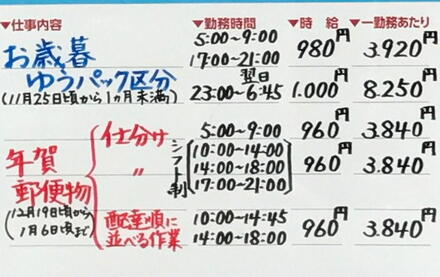 ▼仕事内容 ▼勤務時間 ▼時 給 ▼一勤務あたり
お歳暮 5:00~9:00 980円 3.920円
ゆうパック区分 17:00~21:00
(11月25日頃から1ヵ月未満) 翌日
23:00~6:45 1.000円 8.250円
年賀郵便物 仕分け 5:00~9:00 960円 3.840円
〃 シフト制 10:00~14:00
14:00~18:00 960円 3.840円
17:00~21:00
(12月19日頃から
1月6日頃まで)
配達順に 10:00~14:45
並べる作業 14:00~18:00 960円 3.840円